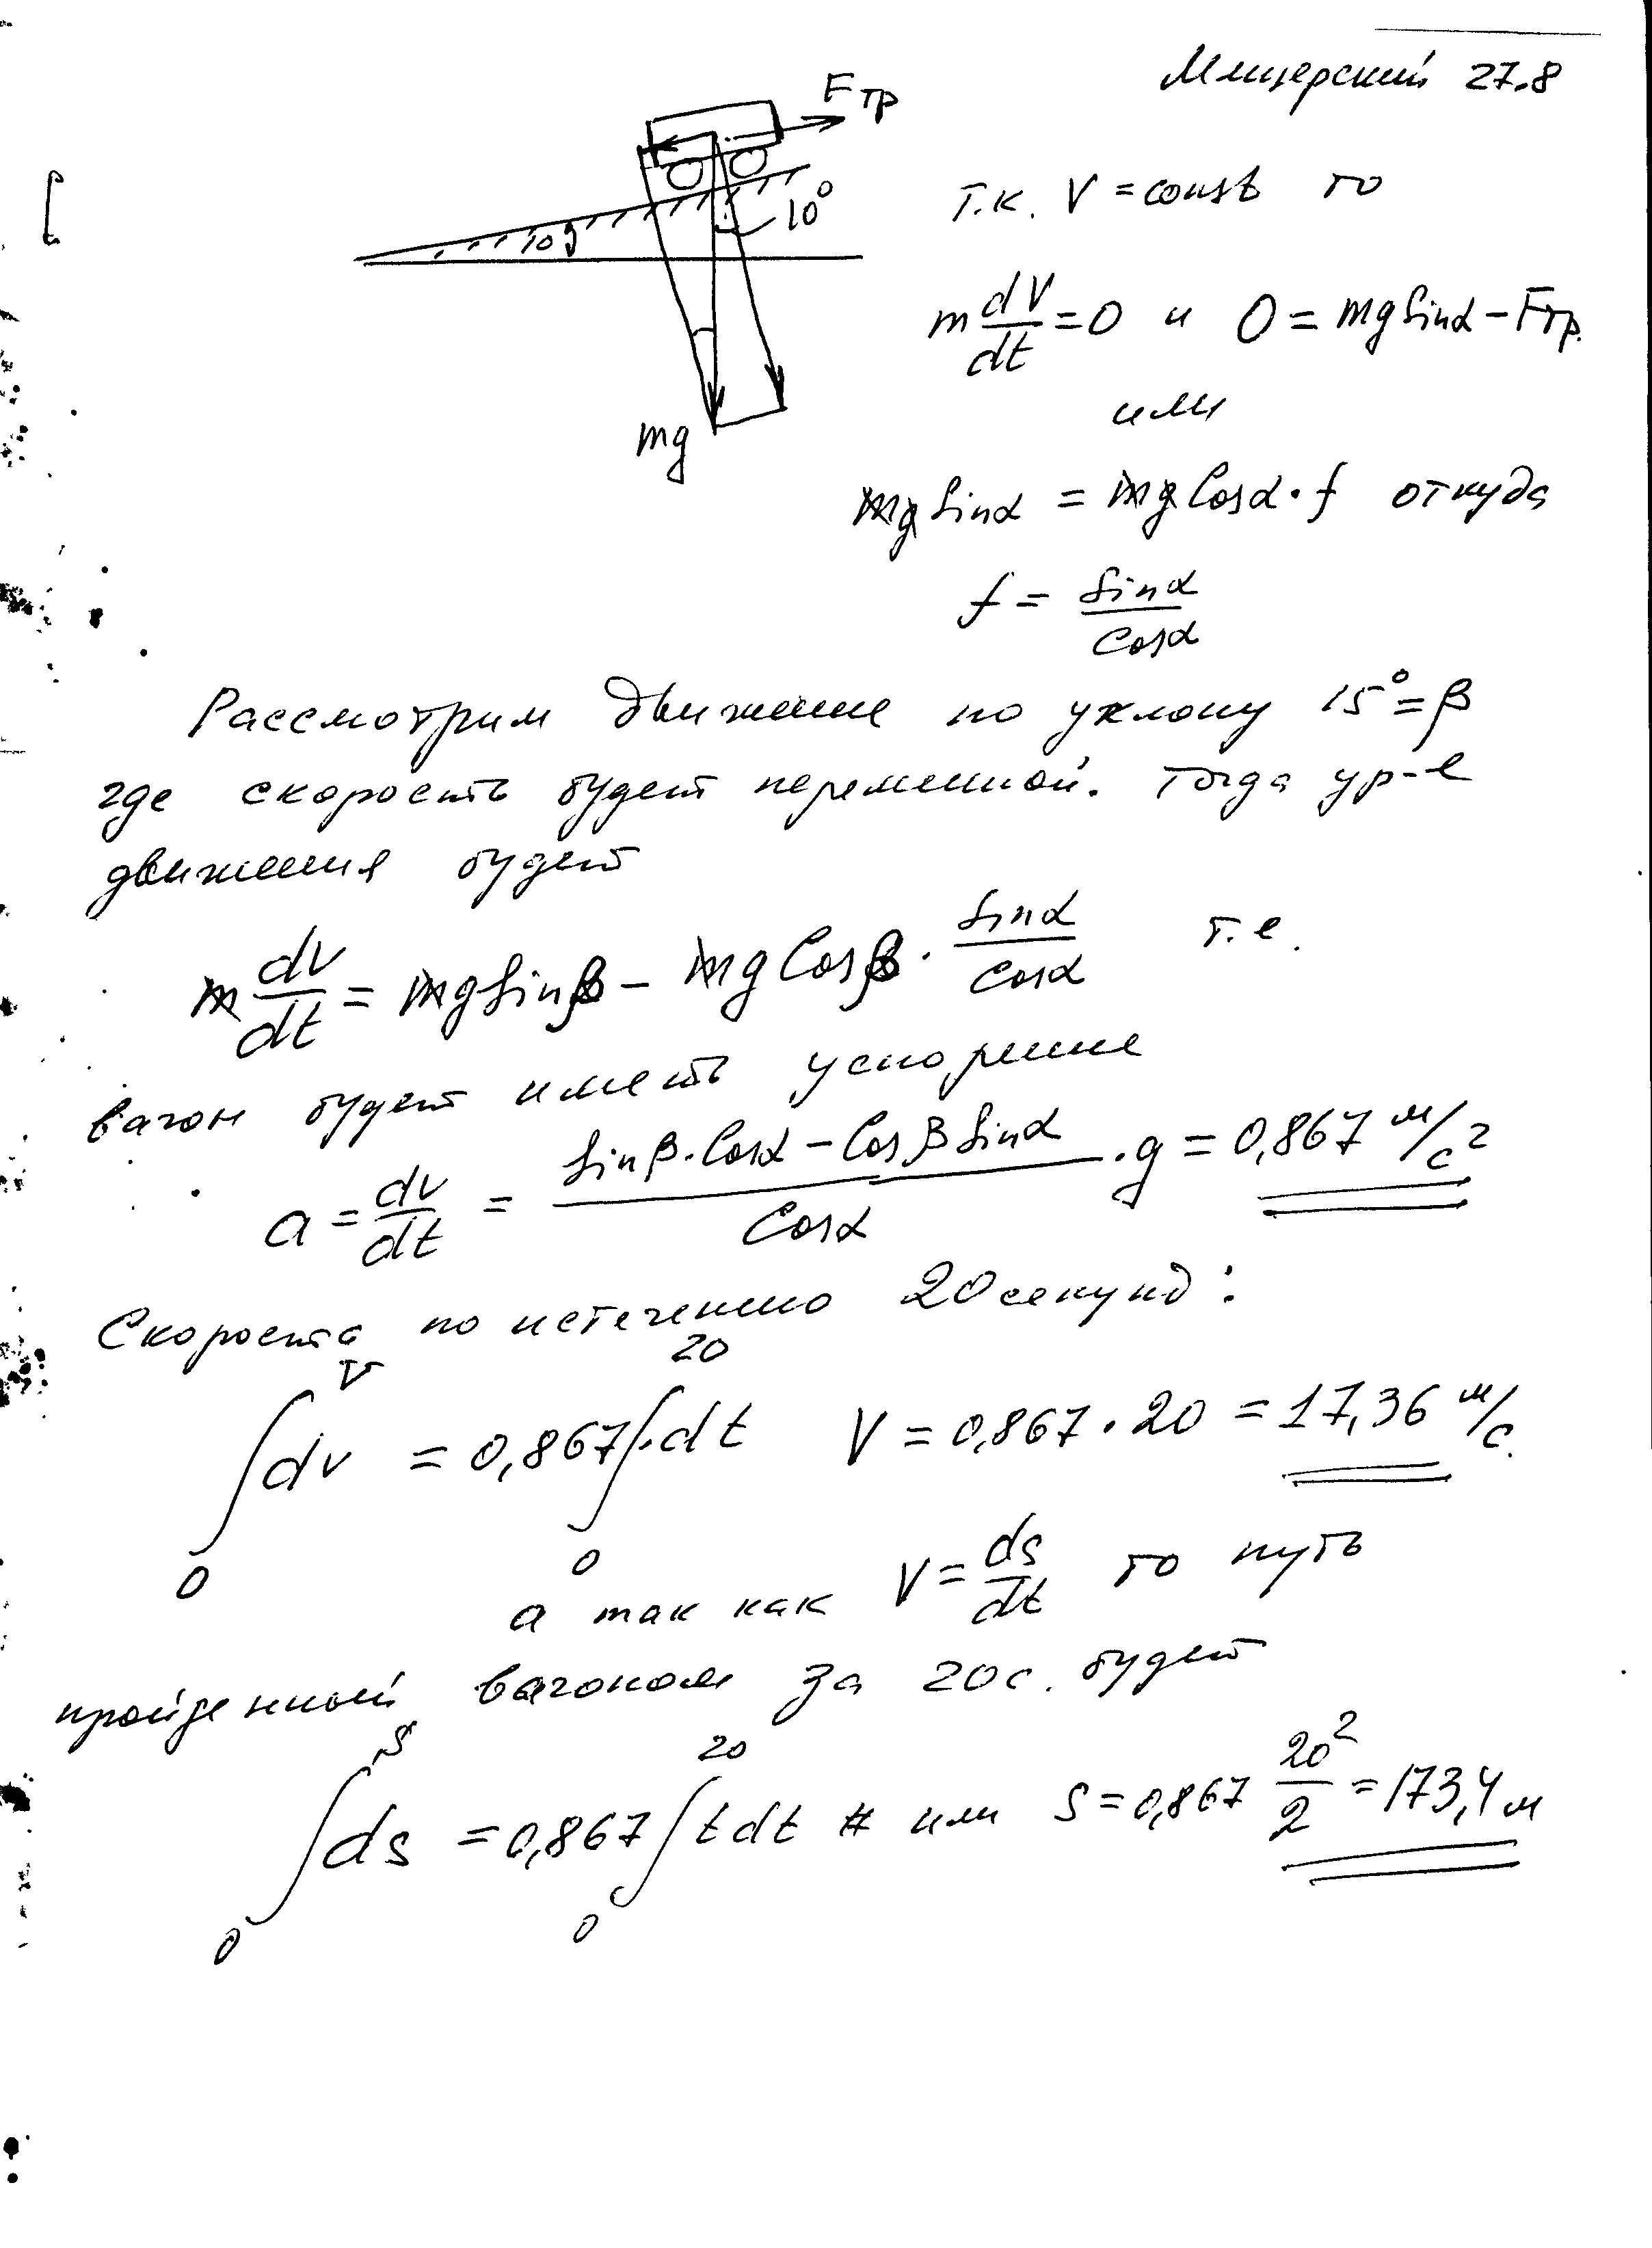 Мещерский 27.8
Fтр
10°
10°
mg
т.к. V = const то
m dV/dt = 0 и 0 = mg Sinα − Fтр.
или
mg Sinα = mg Cosα · f откуда
f = Sinα/Cosα
Рассмотрим движение по уклону 15° = β
где скорость будет переменной. Тогда ур-е
движения будет
m dv/dt = mg Sinβ − mg Cosβ · Sinα/Cosα т.е.
вагон будет иметь ускорение
a = dv/dt = (Sinβ · Cosα − Cosβ Sinα)/Cosα · g = 0,867 м/с²
Скорость по истечению 20 секунд:
∫₀ⱽ dv = 0,867 ∫₀²⁰ · dt V = 0,867 · 20 = 17,36 м/с.
а так как V = ds/dt то путь
пройденный вагоном за 20 с. будет
∫₀ˢ ds = 0,867 ∫₀²⁰ t dt или S = 0,867 20²/2 = 173,4 м